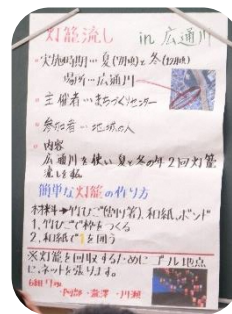 灯籠流し in 広通川
・実施時期…夏(7月頃)と冬(12月頃)
場所…広通川
・主催者…まちづくりセンター
・参加者…地域の人
・内容
広通川を使い夏と冬の年2回灯籠
流しを
簡単な灯籠の作り方
材料→竹ひご(割り箸)、和紙、ボンド
1. 竹ひごで枠をつくる
2. 和紙で を囲う
※灯籠を回収するためにゴール地点
に、ネットを張ります。
6組